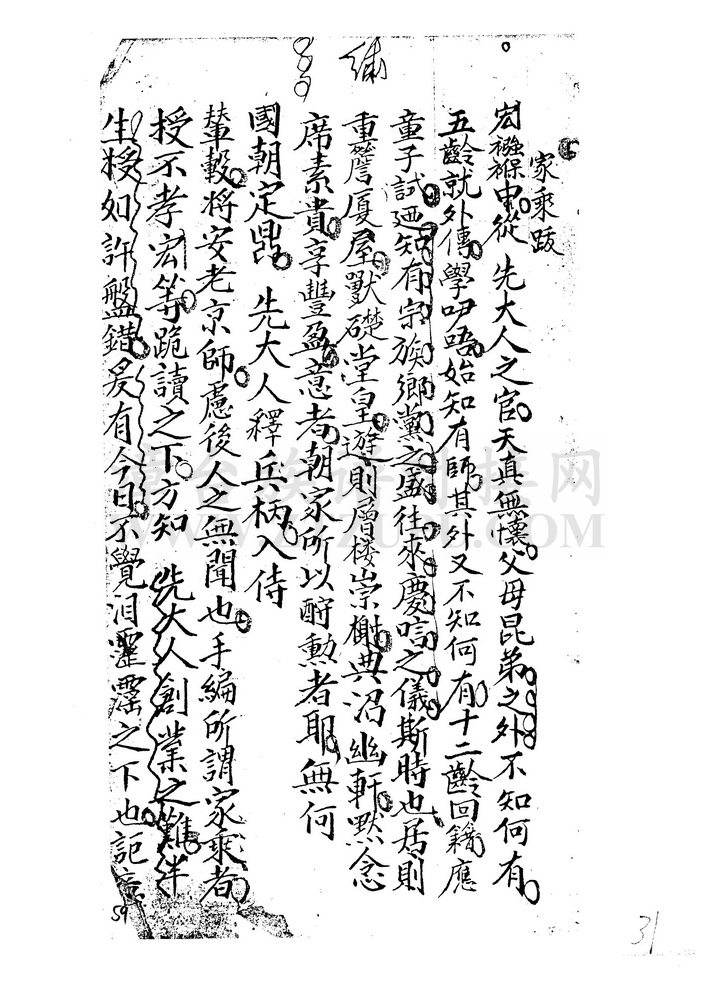 續
家乘跋
宏襁褓中從 先大人之官天真無懷父母昆弟之外不知何有
五齡就外傳學咿唔始知有師其外又不知何有十二齡回籍應
童子試迺知有宗族鄉黨之盛往來慶唁之儀斯時也居則
重簷廈屋獸礎堂皇遊則層楼崇榭典沼幽軒默念
席素貴享豐盈意者朝家所以酧勳者耶無何
國朝定鼎 先大人釋兵柄入侍
輦轂將安老京師慮後人之無聞也手編所謂家乘者
授不孝宏等跪讀之下方知 先大人創業之難半
生授如許盤錯爰有今日不覺泪霊霑之下也記
59
31